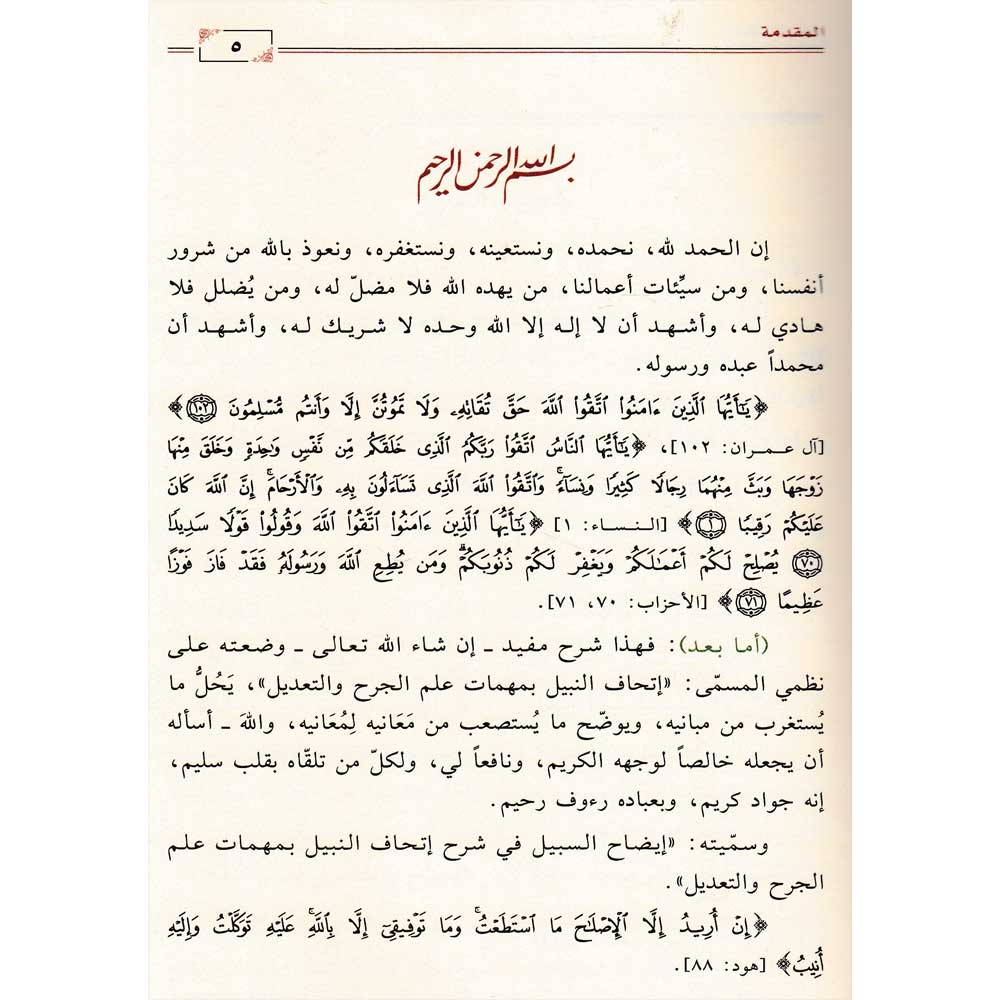 المقدمة
٥
بسم الله الرحمن الرحيم
إن الحمد لله، نحمده، ونستعينه، ونستغفره، ونعوذ بالله من شرور
أنفسنا، ومن سيِّئات أعمالنا، من يهده الله فلا مضلّ له، ومن يُضلل فلا
هادي له، وأشهد أن لا إله إلا الله وحده لا شريك له، وأشهد أن
محمداً عبده ورسوله.
﴿يَٰٓأَيُّهَا ٱلَّذِينَ ءَامَنُوا۟ ٱتَّقُوا۟ ٱللَّهَ حَقَّ تُقَاتِهِۦ وَلَا تَمُوتُنَّ إِلَّا وَأَنتُم مُّسْلِمُونَ ١٠٢﴾
[آل عمران: ١٠٢]، ﴿يَٰٓأَيُّهَا ٱلنَّاسُ ٱتَّقُوا۟ رَبَّكُمُ ٱلَّذِى خَلَقَكُم مِّن نَّفْسٍ وَٰحِدَةٍ وَخَلَقَ مِنْهَا
زَوْجَهَا وَبَثَّ مِنْهُمَا رِجَالًا كَثِيرًا وَنِسَآءً ۚ وَٱتَّقُوا۟ ٱللَّهَ ٱلَّذِى تَسَآءَلُونَ بِهِۦ وَٱلْأَرْحَامَ ۚ إِنَّ ٱللَّهَ كَانَ
عَلَيْكُمْ رَقِيبًا ١﴾ [النساء: ١] ﴿يَٰٓأَيُّهَا ٱلَّذِينَ ءَامَنُوا۟ ٱتَّقُوا۟ ٱللَّهَ وَقُولُوا۟ قَوْلًا سَدِيدًا
٧٠ يُصْلِحْ لَكُمْ أَعْمَٰلَكُمْ وَيَغْفِرْ لَكُمْ ذُنُوبَكُمْ ۗ وَمَن يُطِعِ ٱللَّهَ وَرَسُولَهُۥ فَقَدْ فَازَ فَوْزًا
عَظِيمًا ٧١﴾ [الأحزاب: ٧٠، ٧١].
(أما بعد): فهذا شرح مفيد ـ إن شاء الله تعالى ـ وضعته على
نظمي المسمّى: «إتحاف النبيل بمهمات علم الجرح والتعديل»، يَحُلُّ ما
يُستغرب من مبانيه، ويوضّح ما يُستصعب من مَعَانيه لِمُعَانيه، واللهَ ـ أسأله
أن يجعله خالصاً لوجهه الكريم، ونافعاً لي، ولكلّ من تلقّاه بقلب سليم،
إنه جواد كريم، وبعباده رءوف رحيم.
وسمّيته: «إيضاح السبيل في شرح إتحاف النبيل بمهمات علم
الجرح والتعديل».
﴿إِنْ أُرِيدُ إِلَّا ٱلْإِصْلَٰحَ مَا ٱسْتَطَعْتُ ۚ وَمَا تَوْفِيقِىٓ إِلَّا بِٱللَّهِ ۚ عَلَيْهِ تَوَكَّلْتُ وَإِلَيْهِ
أُنِيبُ﴾ [هود: ٨٨].